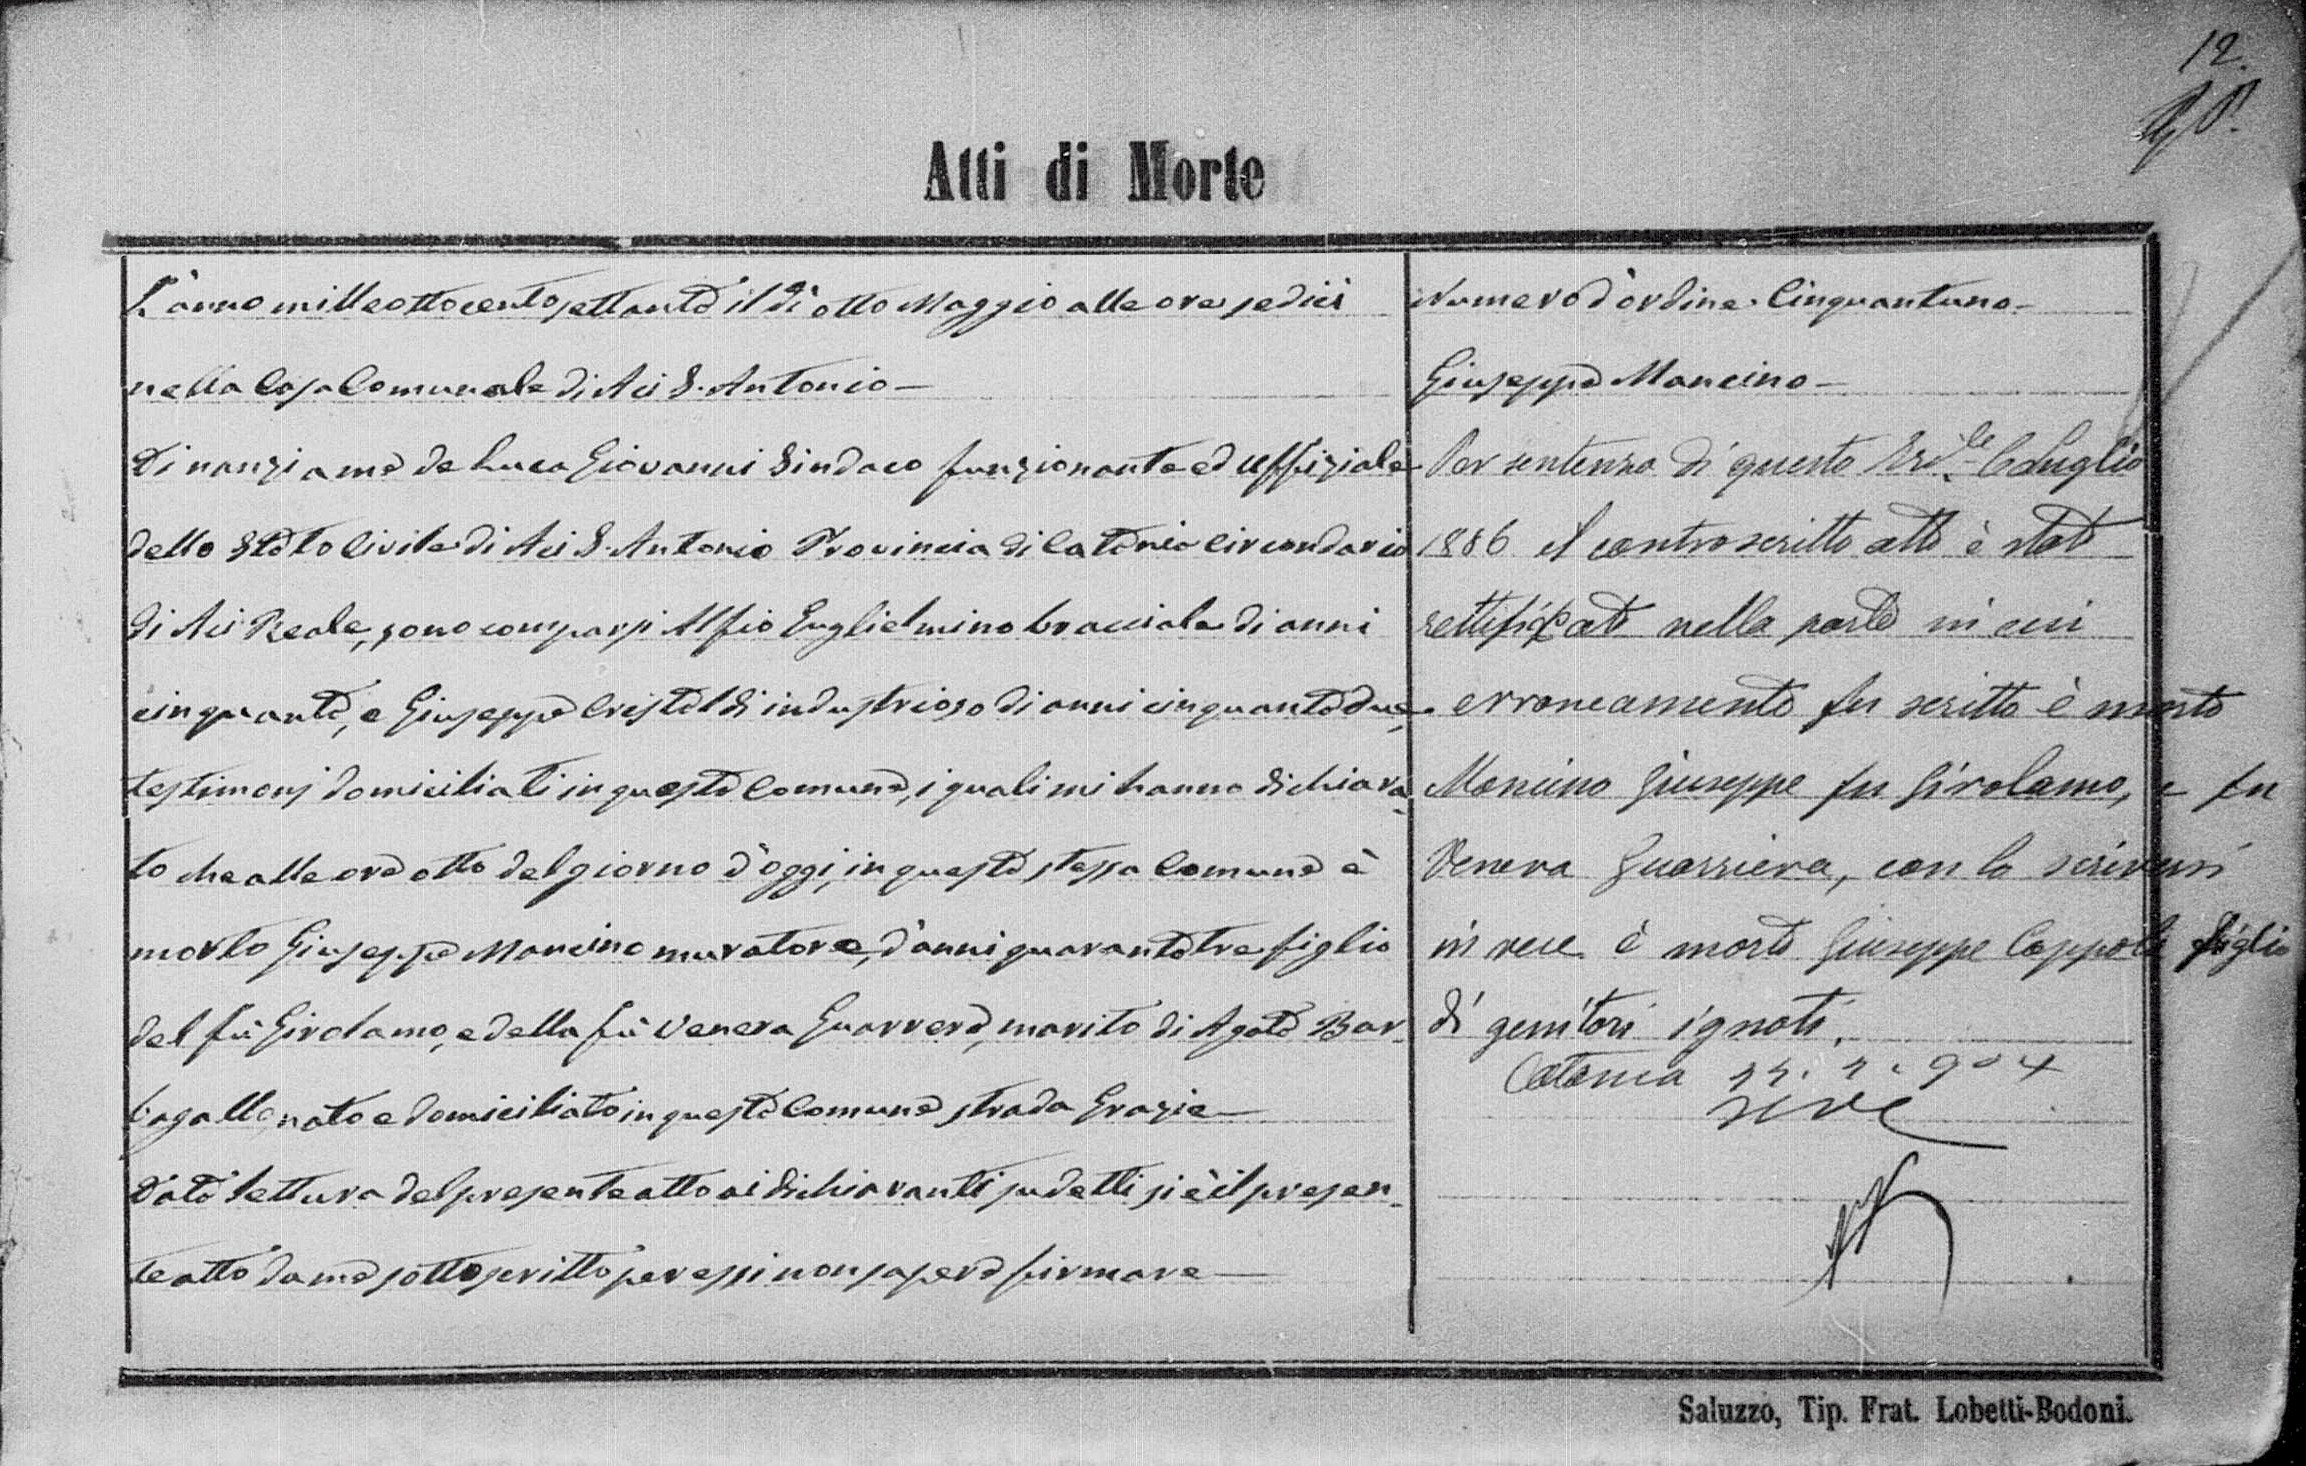 12.
Atti di Morte
L'anno milleottocentosettanta il dì otto Maggio alle ore sedici
nella Casa Comunale di Aci S. Antonio—
Dinanzi a me de Luca Giovanni Sindaco funzionante ed uffiziale
dello Stato Civile di Aci S. Antonio Provincia di Catania circondario
di Aci Reale, sono comparsi Alfio Guglielmino bracciale di anni
cinquanta, e Giuseppe Cristaldi industrioso di anni cinquantadue,
testimonj domiciliati in questo Comune, i quali mi hanno dichiara-
to che alle ore otto del giorno d'oggi, in questo stesso Comune è
morto Giuseppe Mancino muratore, d'anni quarantatre figlio
del fù Girolamo, e della fù Venera Guarrera, marito di Agata Bar-
bagallo, nato e domiciliato in questo Comune strada Grazie—
Data lettura del presente atto ai dichiaranti sudetti si è il presen-
te atto da me sottoscritto per essi non sapere firmare—
Numero d'ordine. Cinquantuno—
Giuseppe Mancino—
Per sentenza di questo Trib.le Luglio
1886 il controscritto atto è stato
rettificato nella parte in cui
erroneamente fu scritto è morto
Mancino Giuseppe fu Girolamo, e fu
Venera Guarriera, con lo scriversi
in vece è morto Giuseppe Coppoli figlio
di genitori ignoti.
Catania
Saluzzo, Tip. Frat. Lobetti-Bodoni.